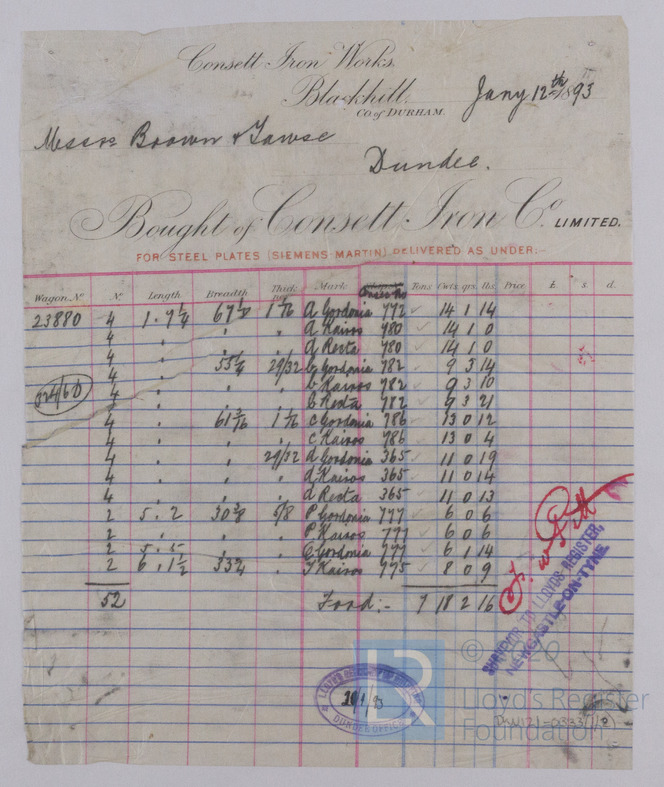 Consett Iron Works,
Blackhill.
CO of DURHAM.
Jany 12th 1893
Messrs Brown & Tawse
Dundee.
Bought of Consett Iron Co. LIMITED.
FOR STEEL PLATES (SIEMENS-MARTIN) DELIVERED AS UNDER:-
Wagon No. No. Length Breadth Thick Mark Order No Tons Cwts. qrs. lbs. Price £ s. d.
23880 4 1 . 9 1/4 1 1/16 a Gordonia 772 14 1 14
4 " " " a Kairos 780 14 1 0
4 " " " a Resta 780 14 1 0
4 " 55 1/4 29/32 b Gordonia 782 9 3 14
4 " " " b Kairos 782 9 3 10
4 " " " b Resta 782 9 3 21
4 " 1 1/16 c Gordonia 786 13 0 12
4 " " " c Kairos 786 13 0 4
4 " " 29/32 d Gordonia 365 11 0 19
4 " " " d Kairos 365 11 0 14
4 " " " d Resta 365 11 0 13
2 5 . 2 5/8 P Gordonia 777 6 0 6
2 " " " P Kairos 777 6 0 6
2 5 . 5 " " Gordonia 777 6 1 14
2 6 . 1 1/2 " Kairos 775 8 0 9
52 Ford:- 7 18 2 16
SURVEYOR TO LLOYD'S REGISTER,
NEWCASTLE-ON-TYNE
LLOYD'S REGISTER OF SHIPPING
DUNDEE OFFICE
LR
© 2020
Lloyd's Register
Foundation